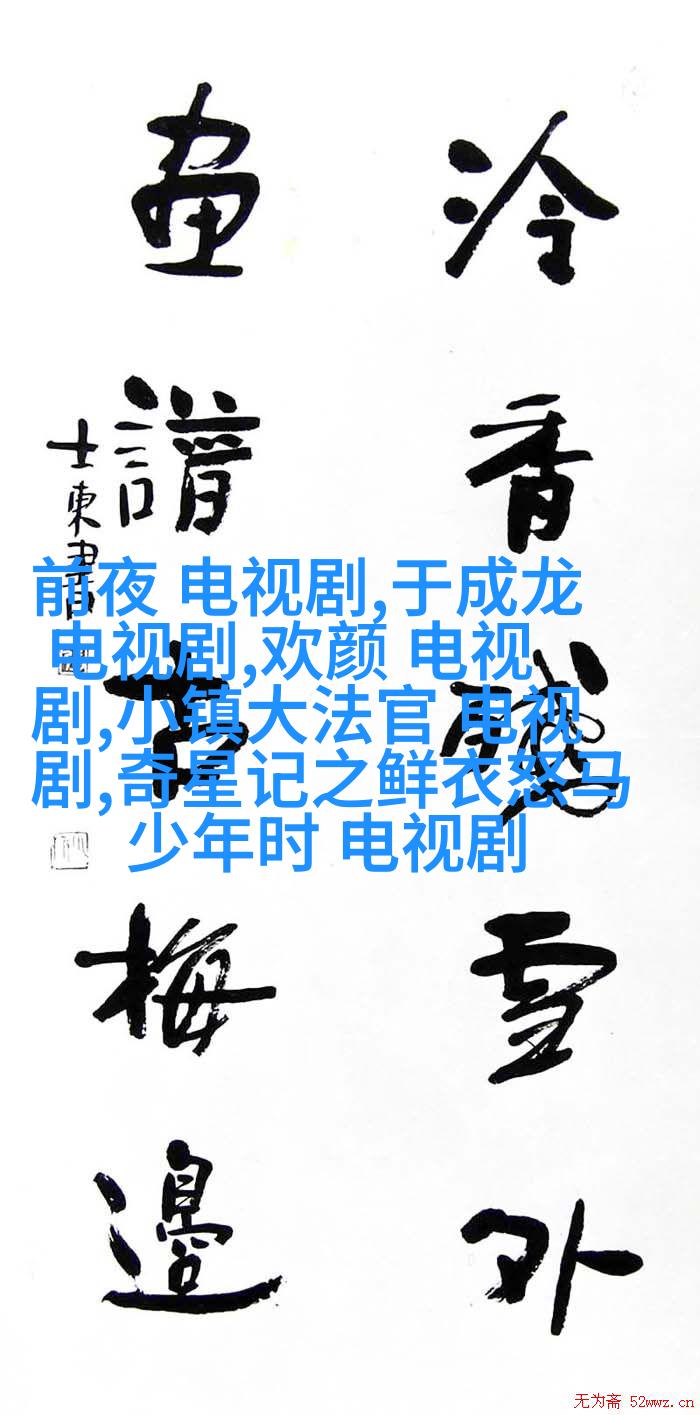 冷香雪外
畫譜梅邊
士東書
前夜 电视剧,于成龙
电视剧,欢颜 电视
剧,小镇大法官 电视
剧,奇星记之鲜衣怒马
少年时 电视剧
无为斋 52wwz.cn